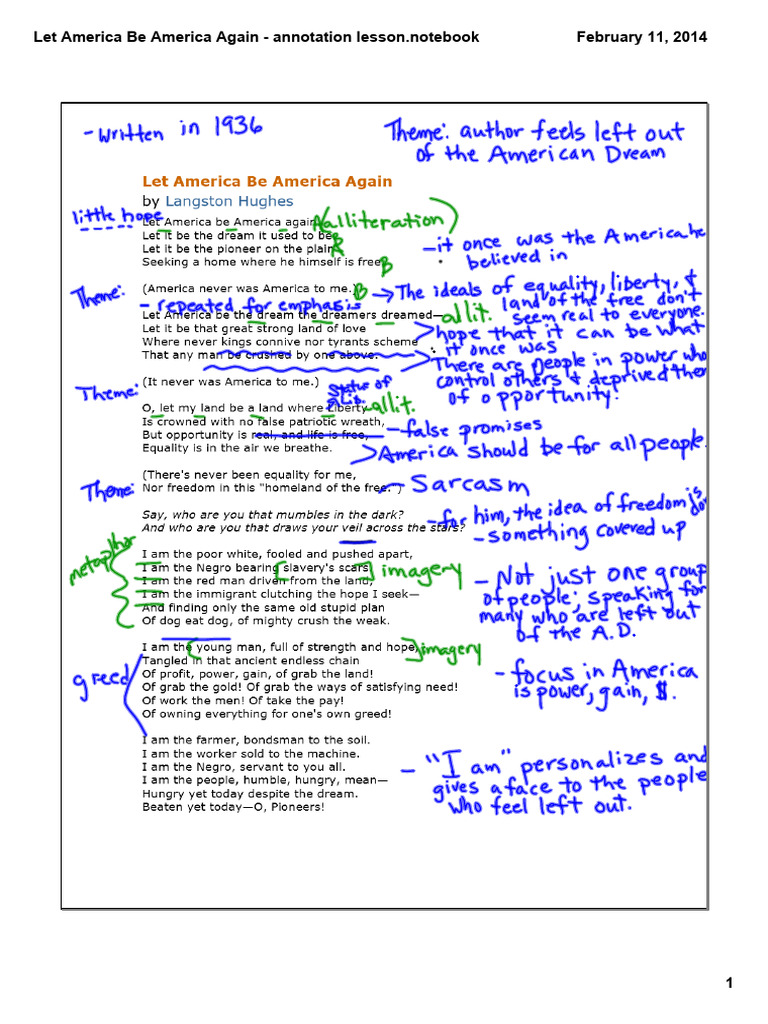 Let America Be America Again - annotation lesson.notebook
February 11, 2014
- written in 1936
Theme: author feels left out
of the American Dream
Let America Be America Again
by Langston Hughes
little hope
Let America be America again.
A
alliteration
Let it be the dream it used to be.
B
Let it be the pioneer on the plain
R
Seeking a home where he himself is free.
B
- it once was the America he
believed in
Theme:
(America never was America to me.)
B
- repeated for emphasis
The ideals of equality, liberty, &
land of the free don't
seem real to everyone.
Let America be the dream the dreamers dreamed—
allit.
Let it be that great strong land of love
hope that it can be what
it once was
Where never kings connive nor tyrants scheme
That any man be crushed by one above.
There are people in power who
control others & deprived them
of opportunity!
Theme:
(It never was America to me.)
Statue of
Lib.
O, let my land be a land where Liberty
allit.
Is crowned with no false patriotic wreath,
- false promises
But opportunity is real, and life is free,
Equality is in the air we breathe.
America should be for all people.
Theme:
(There's never been equality for me,
Nor freedom in this "homeland of the free.")
- Sarcasm
Say, who are you that mumbles in the dark?
And who are you that draws your veil across the stars?
- for him, the idea of freedom is
- something covered up
metaphor
I am the poor white, fooled and pushed apart,
I am the Negro bearing slavery's scars.
imagery
I am the red man driven from the land,
I am the immigrant clutching the hope I seek—
And finding only the same old stupid plan
Of dog eat dog, of mighty crush the weak.
- Not just one group
of people; speaking for
many who are left out
of the A.D.
I am the young man, full of strength and hope,
imagery
Tangled in that ancient endless chain
Of profit, power, gain, of grab the land!
Of grab the gold! Of grab the ways of satisfying need!
Of work the men! Of take the pay!
Of owning everything for one's own greed!
greed
- focus in America
is power, gain, $.
I am the farmer, bondsman to the soil.
I am the worker sold to the machine.
I am the Negro, servant to you all.
I am the people, humble, hungry, mean—
Hungry yet today despite the dream.
Beaten yet today—O, Pioneers!
- "I am" personalizes and
gives a face to the people
who feel left out.
1